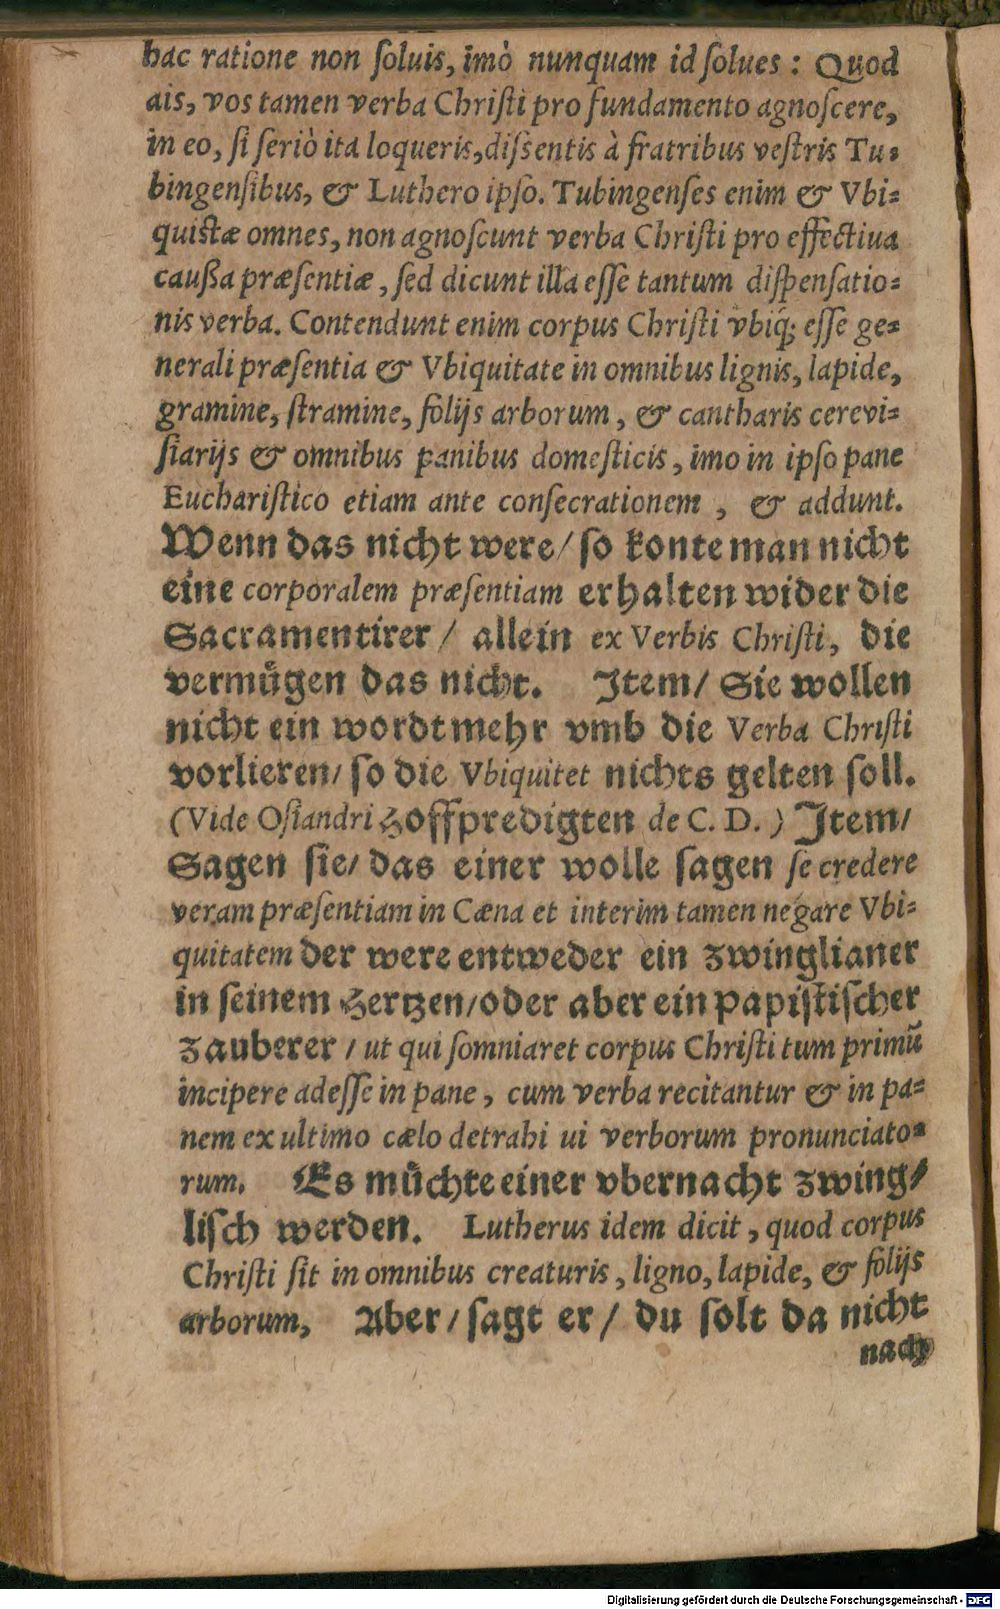 hac ratione non ſoluis, imò nunquam id ſolues: Quod
ais, vos tamen verba Chriſti pro fundamento agnoſcere,
in eo, ſi ſeriò ita loqueris, diſsentis à fratribus veſtris Tu-
bingenſibus, & Luthero ipſo. Tubingenſes enim & Vbi-
quistæ omnes, non agnoſcunt verba Chriſti pro effectiua
cauſſa præſentiæ, ſed dicunt illa eſſe tantum diſpenſatio-
nis verba. Contendunt enim corpus Chriſti vbiq; eſſe ge-
nerali præſentia & Vbiquitate in omnibus lignis, lapide,
gramine, ſtramine, folijs arborum, & cantharis cerevi-
ſiarijs & omnibus panibus domeſticis, imo in ipſo pane
Euchariſtico etiam ante conſecrationem, & addunt.
Wenn das nicht were/ ſo konte man nicht
eine corporalem præſentiam erhalten wider die
Sacramentirer/ allein ex Verbis Chriſti, die
vermuͤgen das nicht. Item/ Sie wollen
nicht ein wordt mehr vmb die Verba Chriſti
vorlieren/ ſo die Vbiquitet nichts gelten ſoll.
(Vide Oſiandri Hoffpredigten de C. D.) Item/
Sagen ſie/ das einer wolle ſagen ſe credere
veram præſentiam in Cæna et interim tamen negare Vbi-
quitatem der were entweder ein Zwinglianer
in ſeinem Hertzen/ oder aber ein Papiſtiſcher
Zauberer/ ut qui ſomniaret corpus Chriſti tum primũ
incipere adeſſe in pane, cum verba recitantur & in pa-
nem ex ultimo cælo detrahi ui verborum pronunciato-
rum. Es muͤchte einer vbernacht Zwing/
liſch werden. Lutherus idem dicit, quod corpus
Chriſti ſit in omnibus creaturis, ligno, lapide, & folijs
arborum, Aber/ ſagt er/ du ſolt da nicht
nach
Digitalisierung gefördert durch die Deutsche Forschungsgemeinschaft - DFG